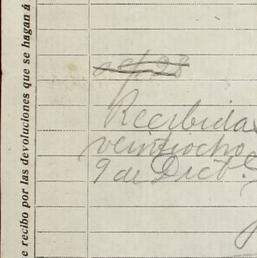 e recibo por las devoluciones que se hagan á
Recibida
veintiocho
9 de Dicbe.